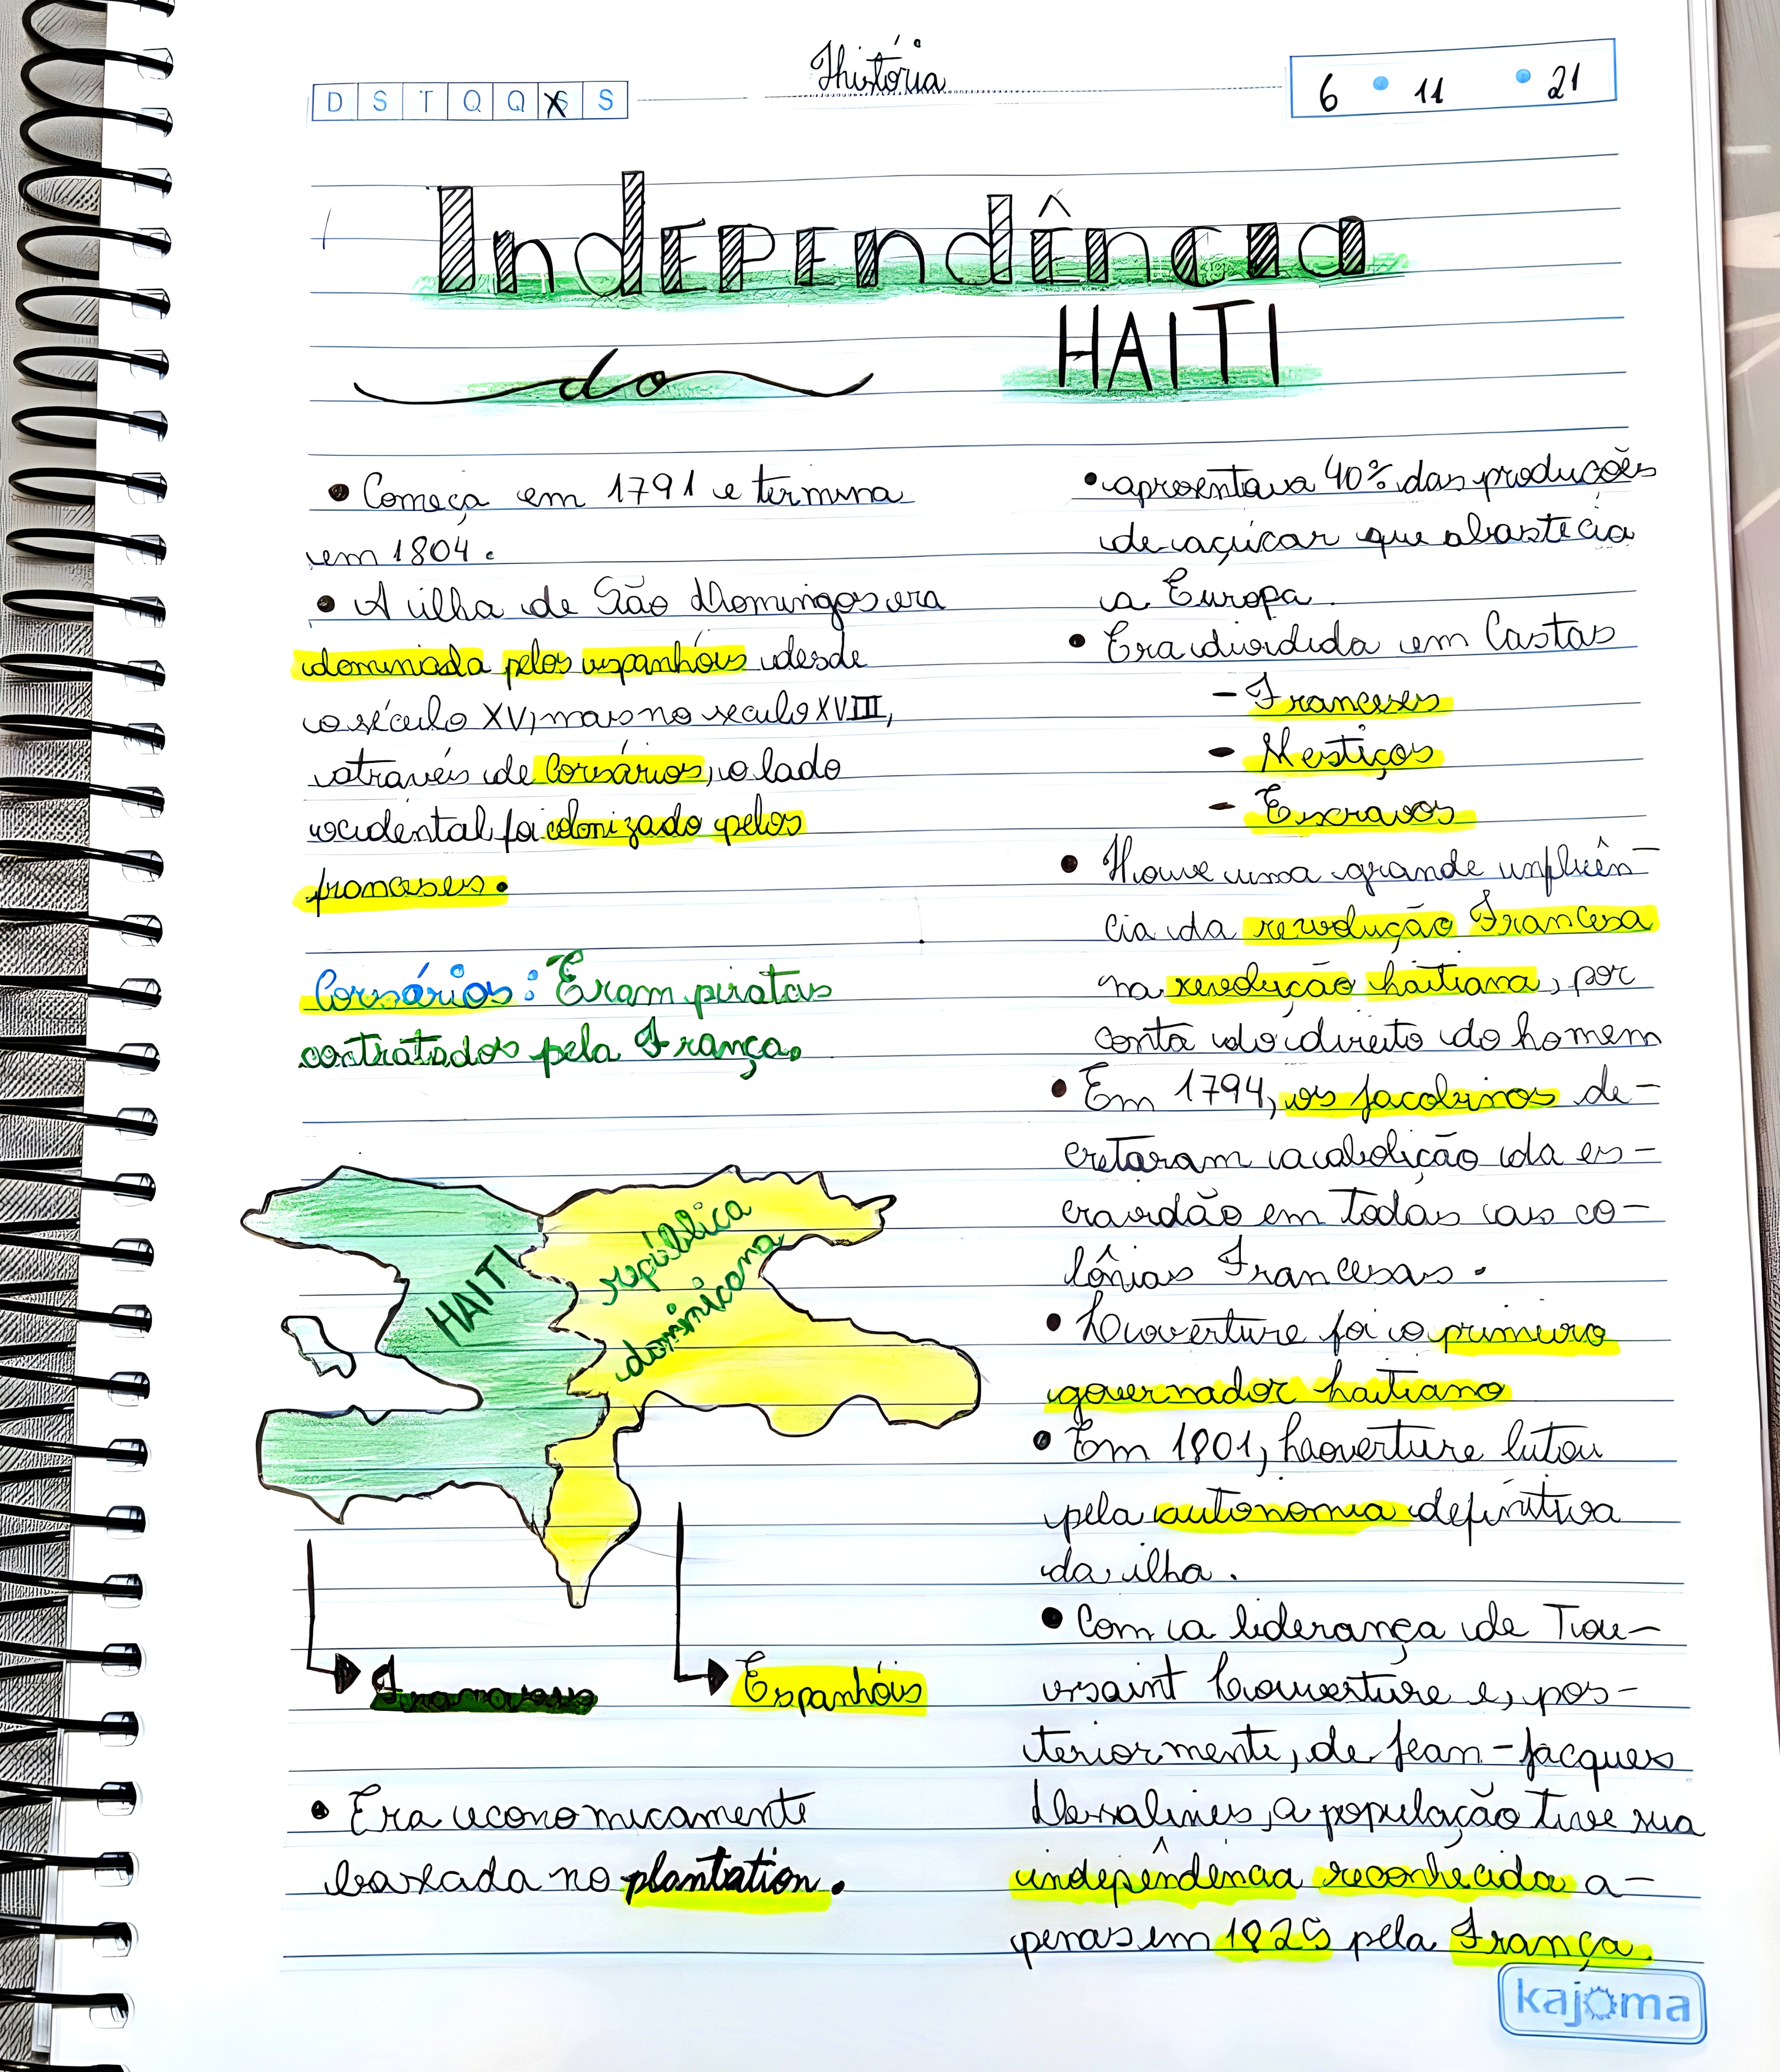 História
D S T Q Q S S
6 11 21
Independência
do HAITI
• Começa em 1791 e termina
em 1804.
• A ilha de São Domingos era
dominada pelos espanhóis desde
o século XV, mas no século XVIII,
através de Corsários, o lado
ocidental foi colonizado pelos
franceses.
Corsários: Eram piratas
contratados pela França.
HAITI
república
dominicana
Franceses
Espanhóis
• Era economicamente
baseada no plantation.
• apresentava 40% das produções
de açúcar que abastecia
a Europa.
• Era dividida em Castas
- Franceses
- Mestiços
- Escravos
• Houve uma grande influên-
cia da revolução Francesa
na revolução haitiana, por
conta do direito do homem
• Em 1794, os jacobinos de-
cretaram a abolição da es-
cravidão em todas as co-
lônias Francesas.
• Louverture foi o primeiro
governador haitiano
• Em 1801, Louverture lutou
pela autonomia definitiva
da ilha.
• Com a liderança de Tou-
ssaint Louverture e, pos-
teriormente, de Jean-Jacques
Dessalines, a população teve sua
independência reconhecida a-
penas em 1825 pela França.
kajoma